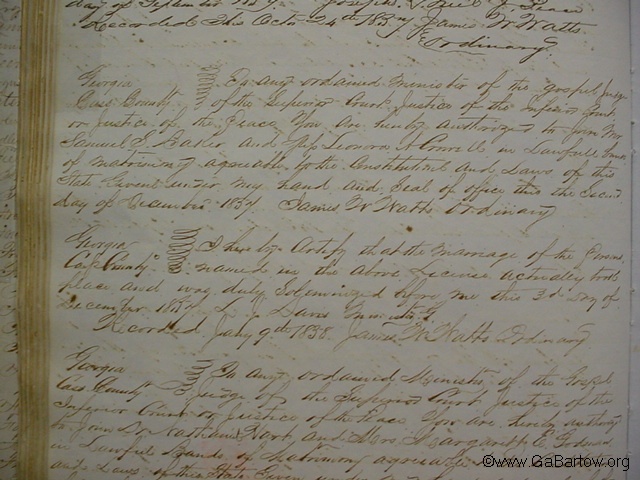 day of September 1857
Recorded this Octo 24th 1857 James W Watts
Ordinary
Georgia To any ordained Minister of the gospel Judge
Cass County of the Superior Court Justice of the Inferior Court
or Justice of the Peace You are hereby authorized to join Mr
Samuel and Miss Leonora A in Lawfull bands
of matrimony agreeable to the Constitution and Laws of this
State Given under my hand and Seal of office this the Second
day of December 1857 James W Watts Ordinary
Georgia I hereby Certify that the marriage of the Persons
Cass County named in the above License actually took
place and was duly Solemnized before me this 3d Day of
December 1857 Davis
Recorded Jany 9th 1858 James W Watts Ordinary
Georgia To any ordained Minister of the Gospel
Cass County Judge of the Superior Court Justice of the
Inferior Court or Justice of the Peace You are hereby authorized
to join Dr Nathaniel and Mrs Margarett E
in Lawful Bands of Matrimony agreeable
and Laws of this State Given under
©www.GaBartow.org